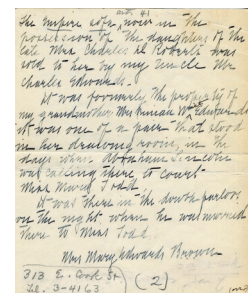 art. 41
The Empire sofa, now in the
possession of the daughters of the
late Mrs Charles H. Roberts was
sold to her by my Uncle Mr
Charles Edwards.
It was formerly the property of
my grandmother Mrs Ninian W. Edwards
it was one of a pair that stood
in her drawing room, in the
days when Abraham Lincoln
was calling there to court
Miss Mary Todd
It was there in the south parlor
on the night when he was married
there to Miss Todd.
Mrs Mary Edwards Brown
313 E. Cook St
Tel. 3-4163
(2)